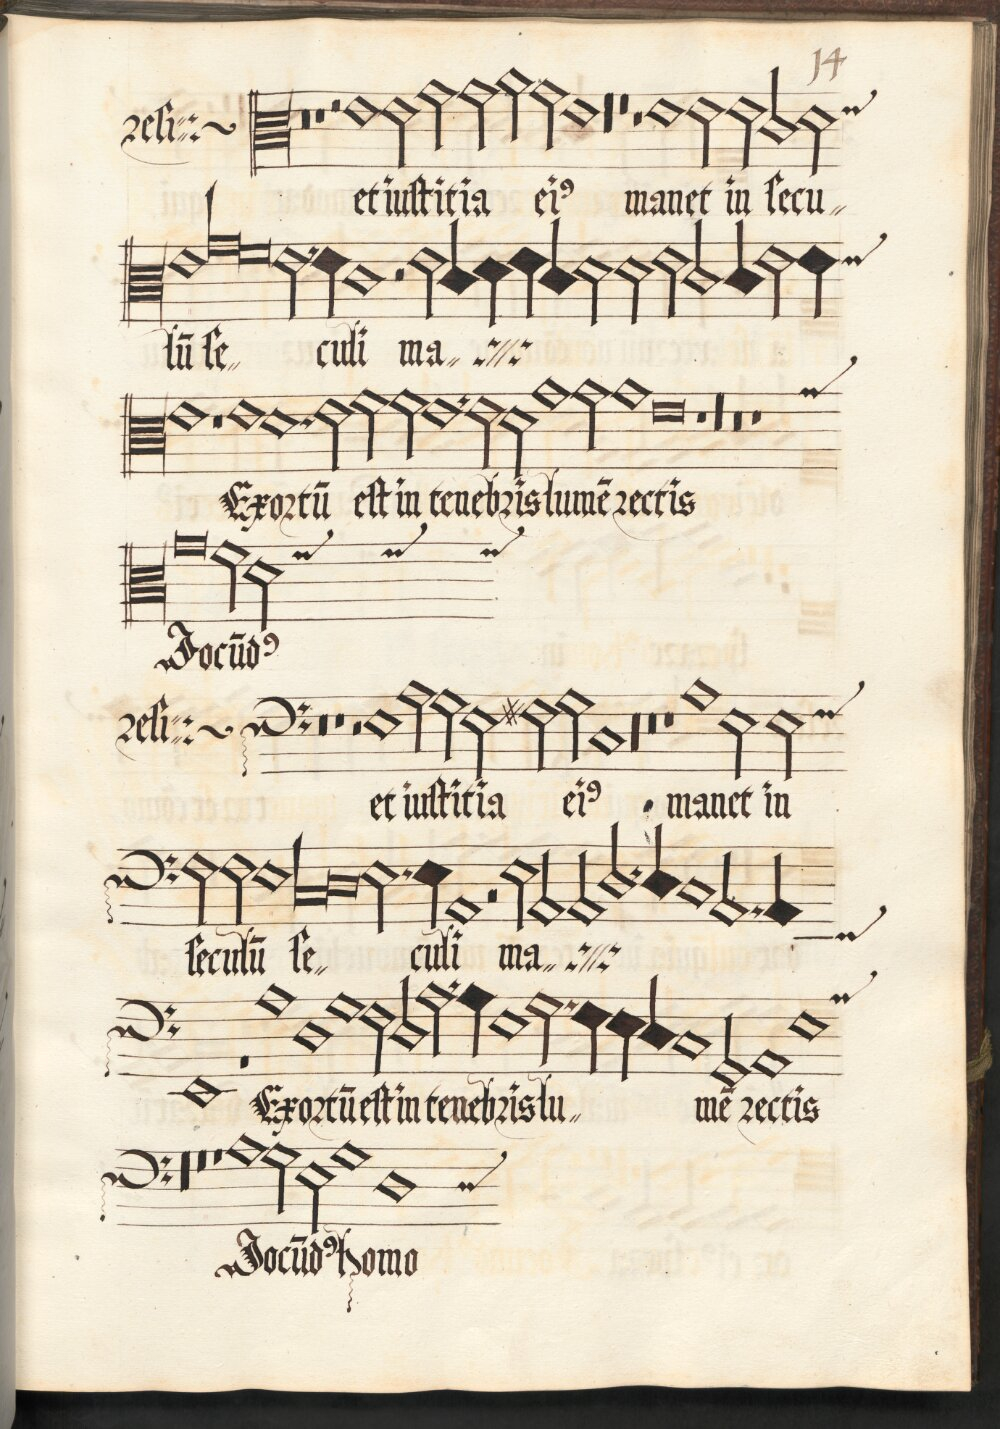 14
resi
et iustitia eiꝰ manet in secu
lū se culi ma
Exortū est in tenebris lumē rectis
Jocūdꝰ
resi
et iustitia eiꝰ manet in
seculū se culi ma
Exortū est in tenebris lu mē rectis
Jocūdꝰ homo